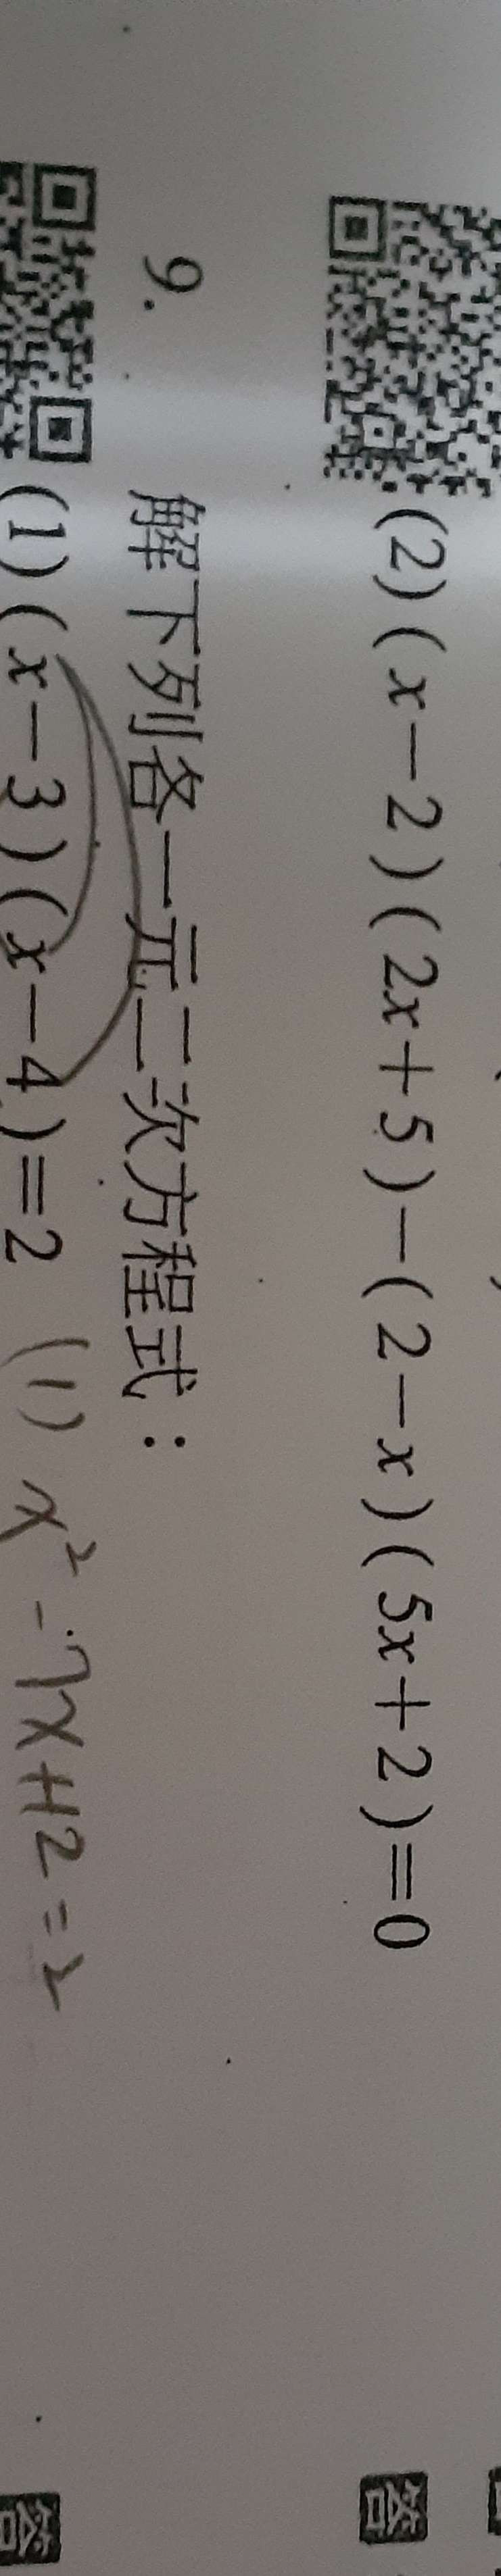 (2)(x－2)(2x＋5)－(2－x)(5x＋2)＝0
答
9. 解下列各一元二次方程式：
(1)(x－3)(x－4)＝2 (1) x²－7x＋12＝2
答